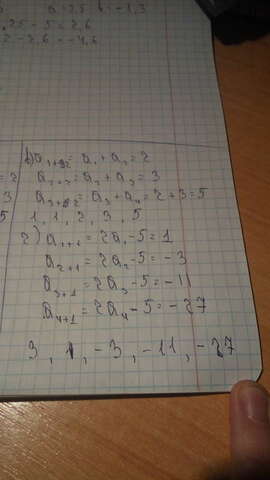 ,25-5=2,6
2-2,6=-4,6
в) a₁₊₂=a₁+a₂=2
a₂₊₂=a₂+a₃=3
a₃₊₂=a₃+a₄=2+3=5
1, 1, 2, 3, 5
г) a₁₊₁=2a₁-5=1
a₂₊₁=2a₂-5=-3
a₃₊₁=2a₃-5=-11
a₄₊₁=2a₄-5=-27
3, 1, -3, -11, -27